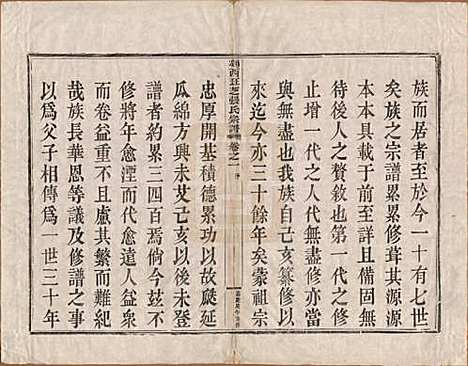 族而居者至於今一十有七世
矣族之宗譜累累修葺其源源
本本具載于前至詳且備固無
待後人之贅敘也第一代之修
止增一代之人代無盡修亦當
與無盡也我族自己亥纂修以
來迄今亦三十餘年矣蒙祖宗
張氏宗譜 卷之一 序
忠厚開基積德累功以故蕆延
瓜綿方興未艾己亥以後未登
者約累三四百焉倘今茲不
修愈湮而代愈遠人益衆
而卷益重不且盧其繁而難紀
哉族長華恩等議及修譜之事
以為父子相傳為一世三十年